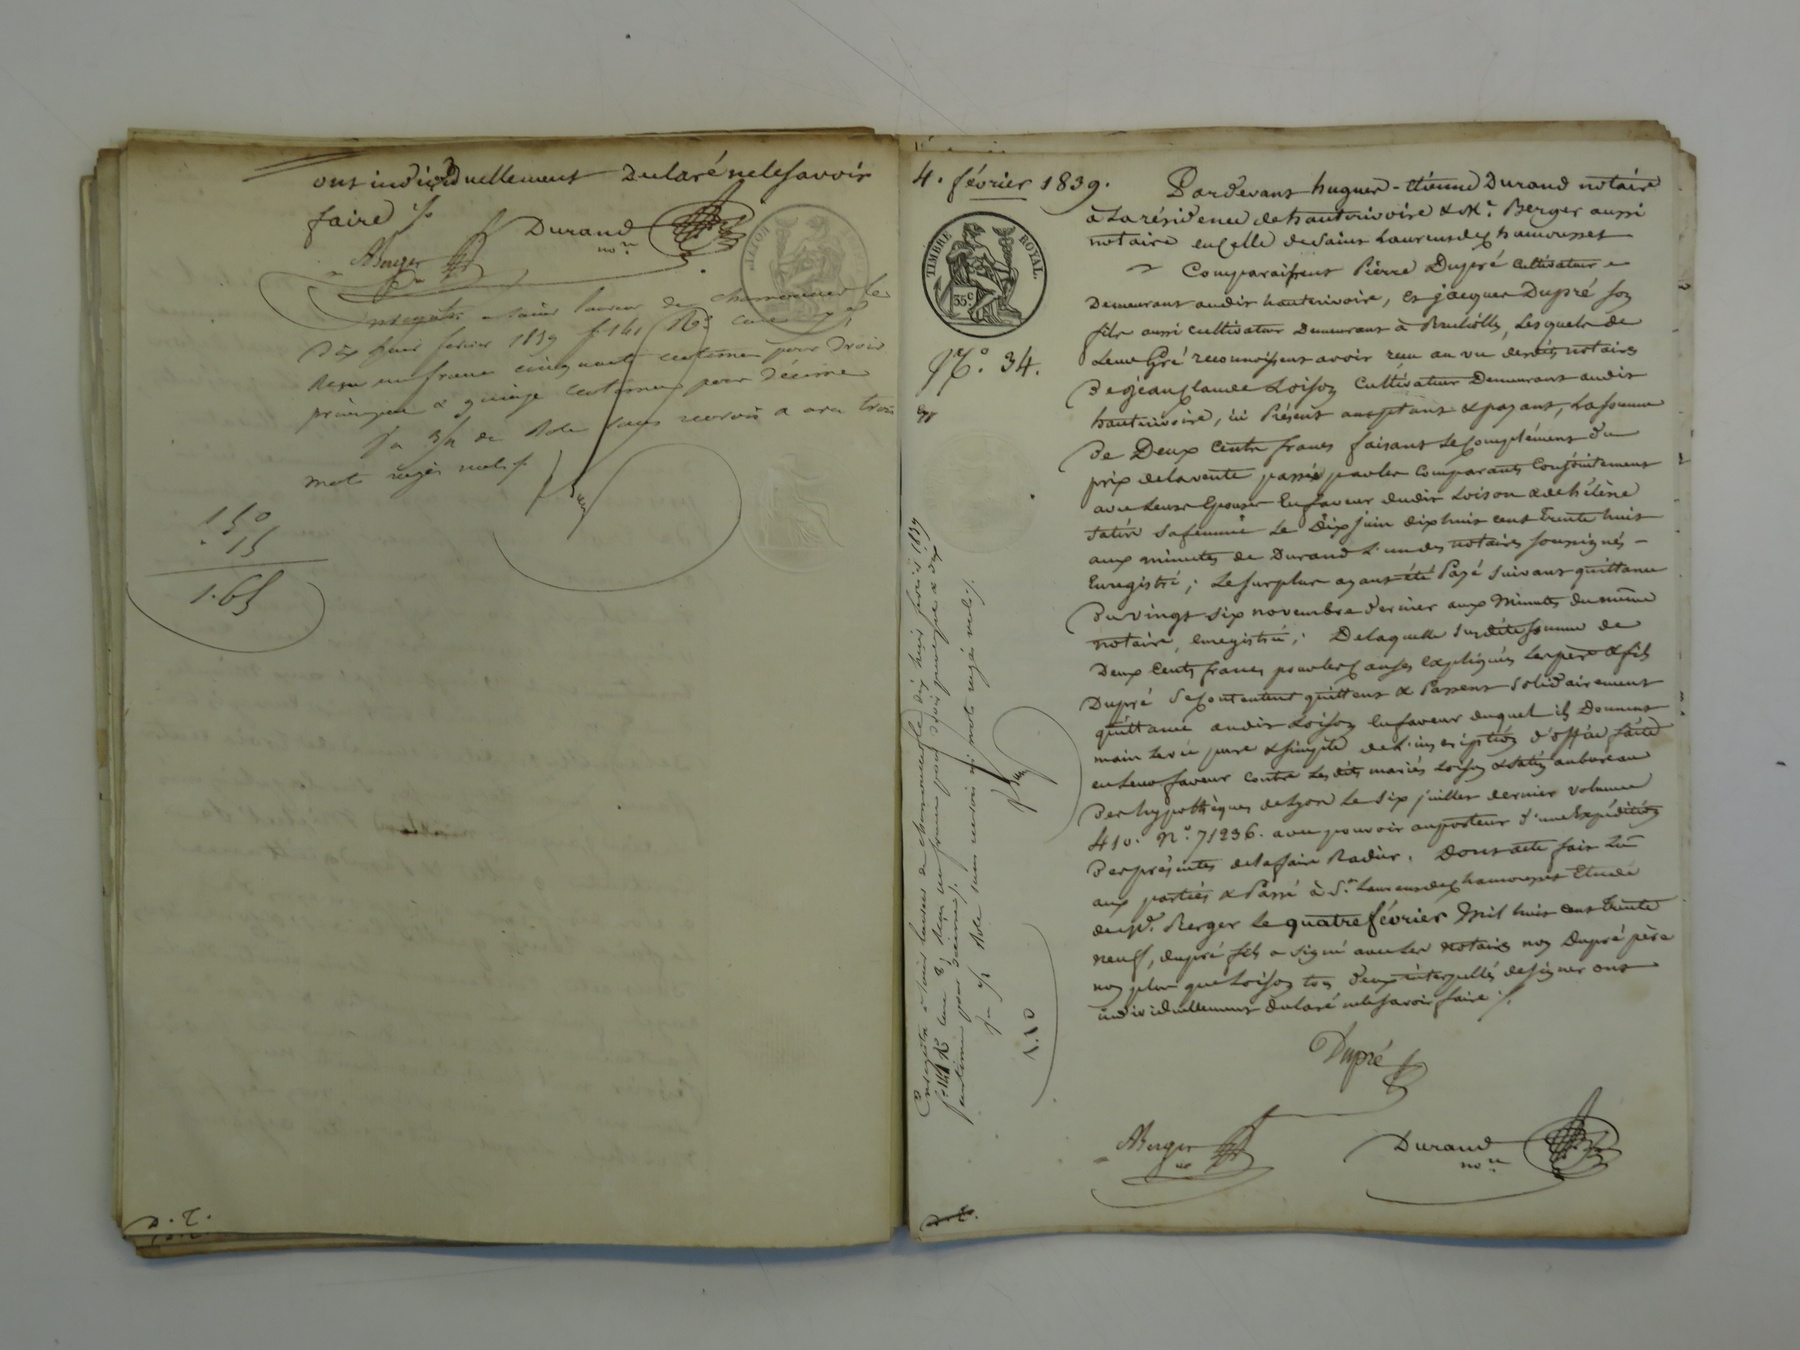 ont individuellement declaré ne le savoir
faire ./.
Durand
ABerger
nore
Enregistré à Saint Laurent de chamousset le
dix huit fevrier 1839 f° 141 Ro Case
Reçu un franc cinquante centimes pour droit
principal & quinze centimes pour decime
mots rayés nuls
1.50
. 15
1.65
D.T.
4. février 1839.
TIMBRE ROYAL
35 c.
No. 34.
Pardevant hugues-etienne Durand notaire
à La résidence de hauterivoire & Me. Berger aussi
notaire en celle de Saint Laurent de chamousset
Comparaissent Pierre Dupré cultivateur
Demeurant audit hauterivoire, Et jacques Dupré son
fils aussi cultivateur Demeurant à Brullioles, Lesquels de
Leur Gré reconnoissent avoir reçu au vu desdits notaires
De jean claude Loison Cultivateur Demeurant audit
hauterivoire, ici Présent acceptant & payant, La somme
De Deux Cents francs faisant le complément du
prix de la vente passée par les Comparants Conjointement
avec Leurs Epouses En faveur dudit Loison & de hélène
sa femme Le Dix juin dix huit cent trente huit
aux minutes de Durand L'un des notaires soussignés -
Enregistré ; Le surplus ayant été Payé Suivant quittance
Du vingt six novembre dernier aux Minutes du même
notaire, enregistrée ; De laquelle susdite somme de
Deux Cents francs pour les causes expliquées Les père & fils
Dupré Se contentent quittent & Passent solidairement
quittance audit Loison En faveur duquel ils Donnent
main Levée pure & simple de L'inscription d'office faite
en Leur faveur contre Lesdits mariés Loison & au bureau
Des hypothèques de Lyon Le Six juillet dernier volume
410. No. 71236. avec pouvoir au porteur d'une Expédition
Des présentes de la faire Radier. Dont acte fait Lu
aux parties & Passé à St. Laurent de chamousset Etude
du Me. Berger Le quatre février Mil huit cent trente
neuf, dupré fils a signé avec Les notaires non Dupré père
non plus que Loison tous deux interpellés de signer ont
individuellement declaré ne le savoir faire ./.
Dupré
ABerger
Durand
nore
Enregistré à Saint Laurent de chamousset le dix huit février 1839
centimes pour decime ./.
mots rayés nuls ./.
D.T.